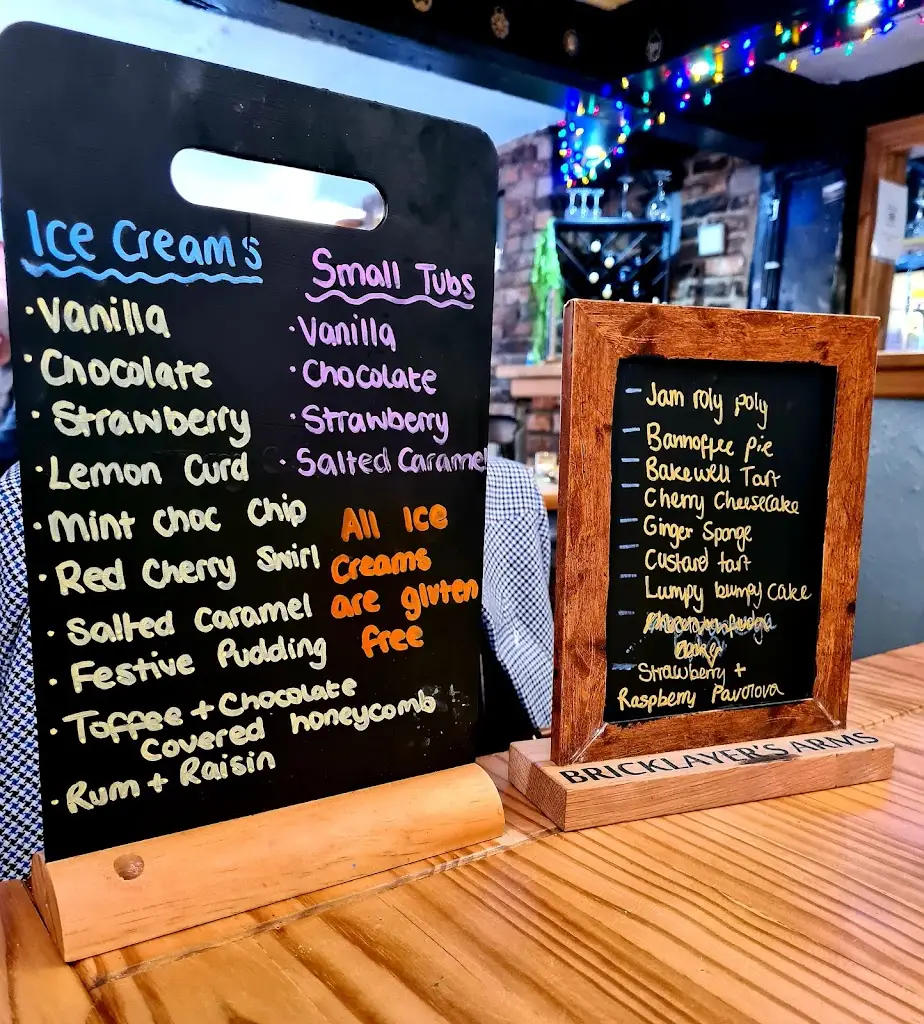 Ice Creams
· Vanilla
· Chocolate
· Strawberry
· Lemon Curd
· Mint Choc Chip
· Red Cherry Swirl
· Salted Caramel
· Festive Pudding
· Toffee + Chocolate
Covered honeycomb
· Rum + Raisin
Small Tubs
· Vanilla
· Chocolate
· Strawberry
· Salted Caramel
All Ice
Creams
are gluten
free
- Jam roly poly
- Bannoffee pie
- Bakewell Tart
- Cherry Cheesecake
- Ginger Sponge
- Custard tart
- Lumpy bumpy cake
- Strawberry +
Raspberry Pavolova
BRICKLAYER'S ARMS